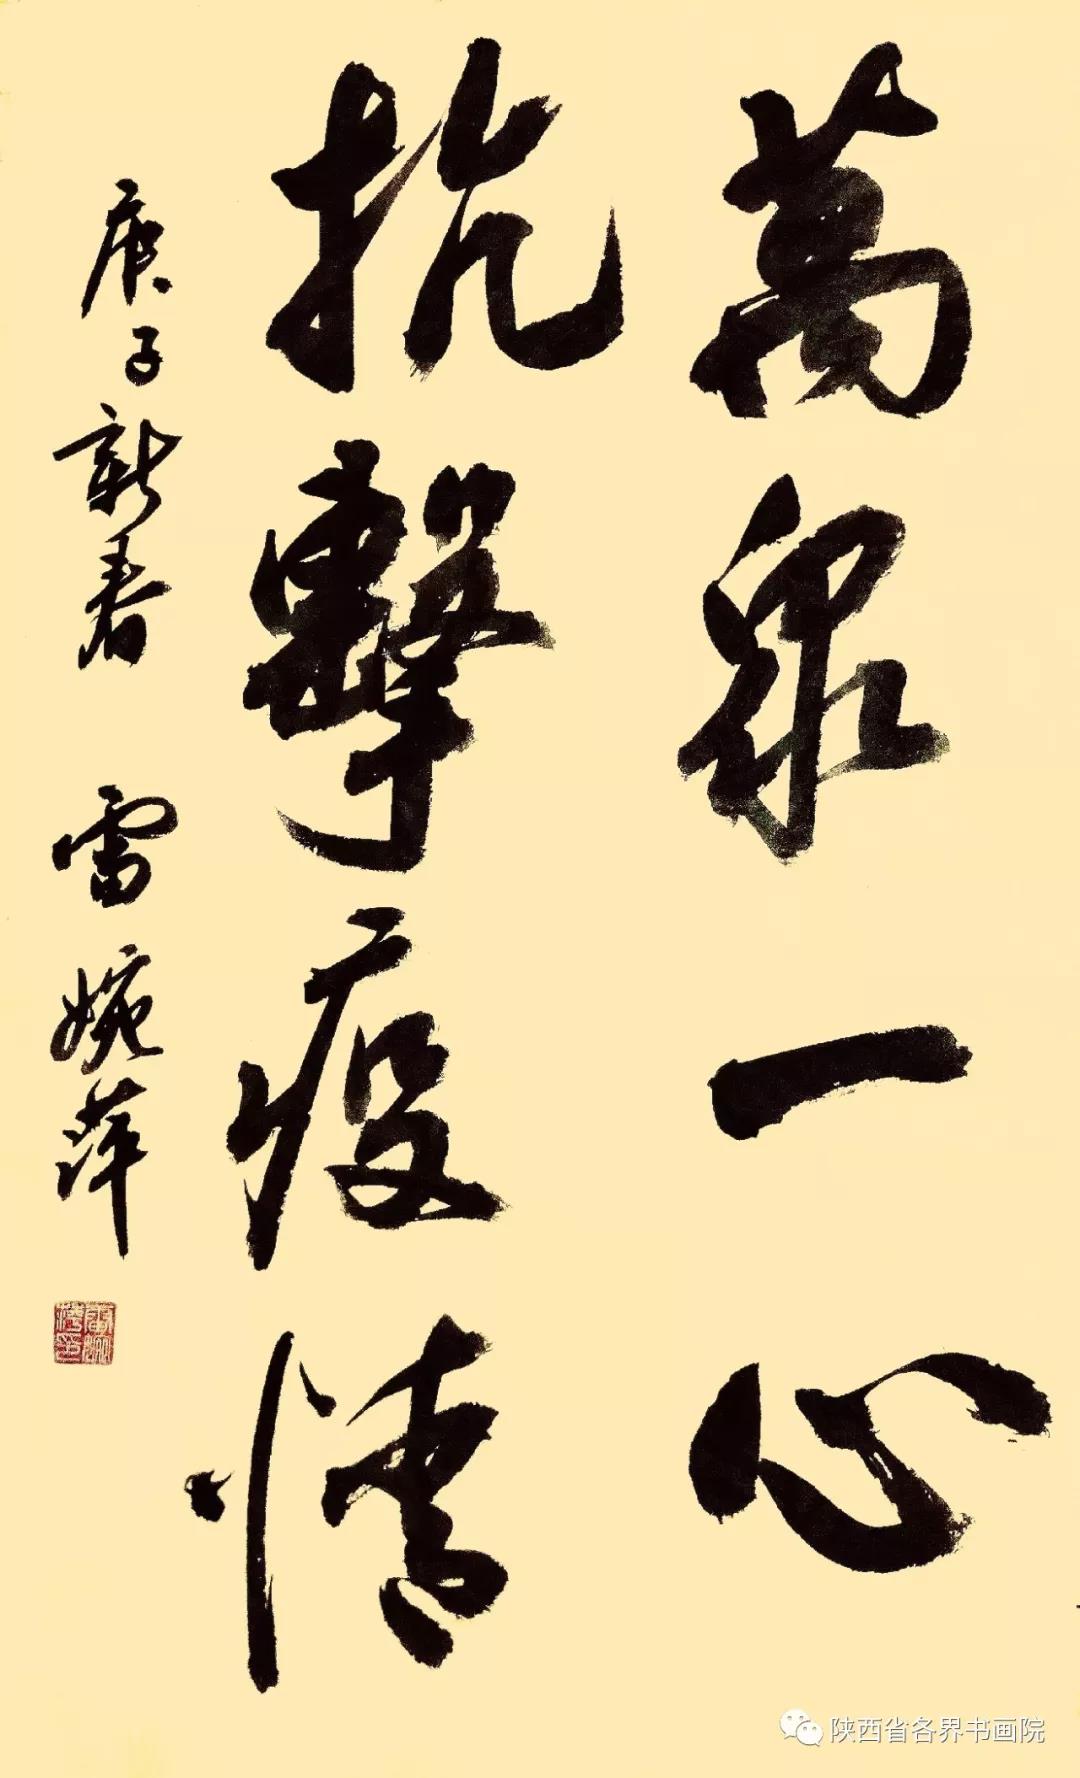 萬眾一心
抗擊疫情
庚子新春 雷婉萍
陕西省各界书画院